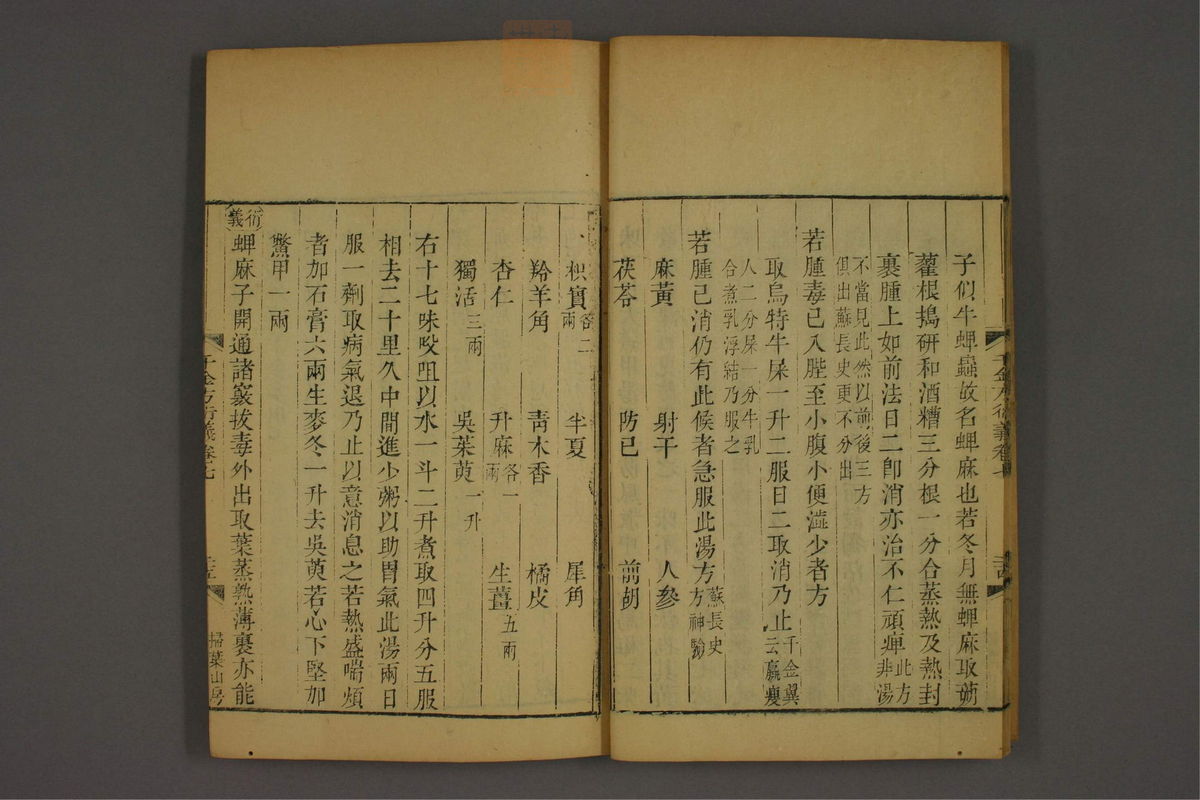 子似牛蜱蟲故名蜱麻也若冬月無蜱麻取蒴
藋根搗研和酒糟三分根一分合蒸熱及熱封
裹腫上如前法日二卽消亦治不仁頑痺此方非湯
不當見此然以前後三方
俱出蘇長史更不分出
若腫毒已入䏶至小腹小便澁少者方
取烏特牛屎一升二服日二取消乃止千金翼云羸瘦
人二分屎一分牛乳
合煮乳浮結乃服之
若腫已消仍有此候者急服此湯方蘇長史方神驗
麻黃 射干 人參
茯苓 防已 前胡
枳實各二兩 半夏 犀角
羚羊角 靑木香 橘皮
杏仁 升麻各一兩 生薑五兩
獨活三兩 吳茱萸一升
右十七味㕮咀以水一斗二升煮取四升分五服
相去二十里久中間進少粥以助胃氣此湯兩日
服一劑取病氣退乃止以意消息之若熱盛喘煩
者加石膏六兩生麥冬一升去吳萸若心下堅加
鱉甲一兩
衍義
蜱麻子開通諸竅拔毒外出取葉蒸熟薄裹亦能
千金方衍義卷七
掃葉山房